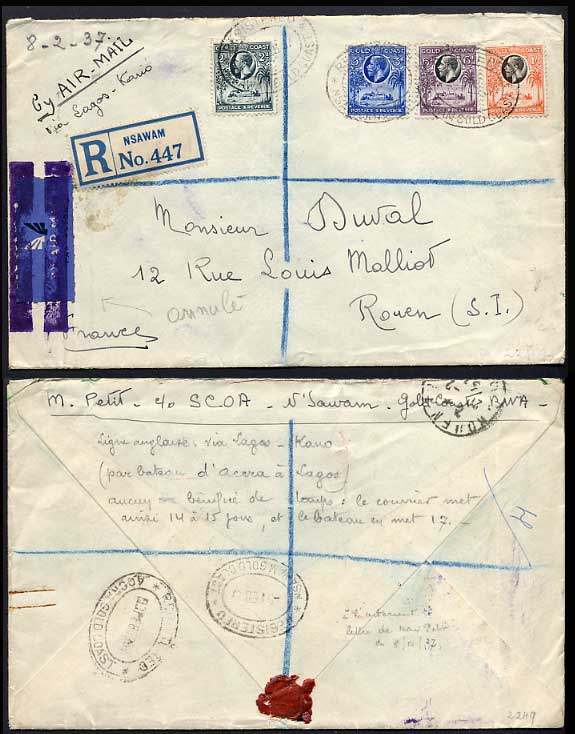 8-2-37
by AIR-MAIL
via Lagos-Kano
GOLD COAST
POSTAGE & REVENUE
GOLD COAST
POSTAGE & REVENUE
GOLD COAST
POSTAGE & REVENUE
GOLD COAST
POSTAGE & REVENUE
R
NSAWAM
No. 447
Monsieur Duval
12 Rue Louis Malliot
Rouen (S.I.)
annulé
France
M. Petit - c/o SCOA - N'Sawam - Gold Coast BWA -
ROUEN
Ligne anglaise via Lagos - Kano
(par bateau d'Accra à Lagos)
aucun bénéfice de temps : le courrier met
ainsi 14 à 15 jours, et le bateau en met 17. -
REGISTERED
NSAWAM GOLD COAST
REGISTERED
ACCRA GOLD COAST
lettre de
2249